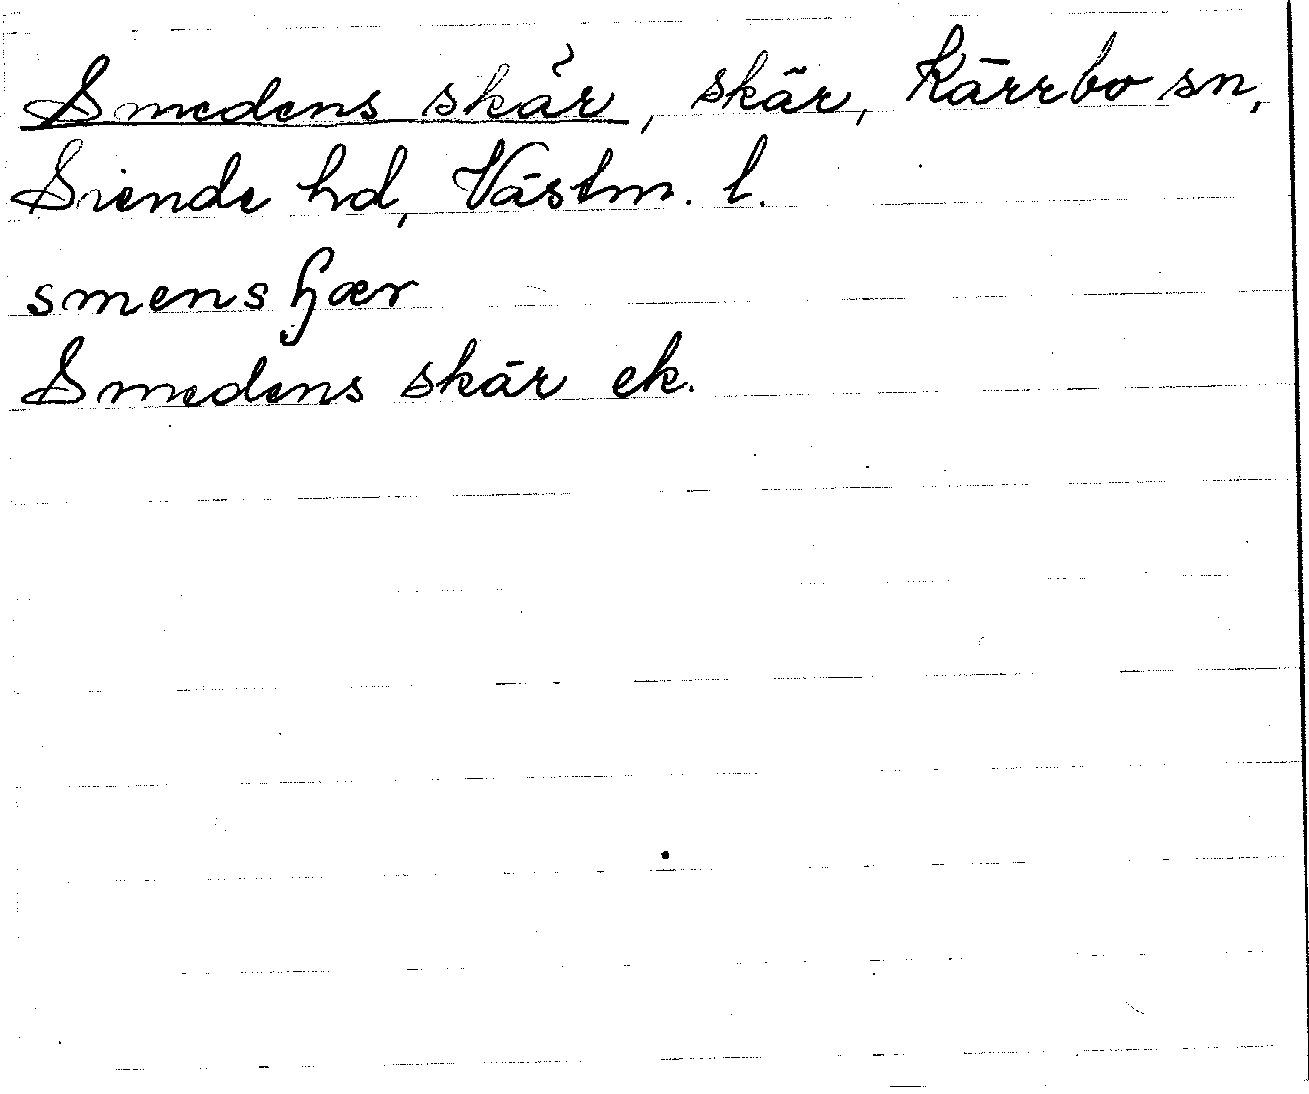 Smedens skär, skär, Kärrbo sn,
Siende hd, Västm. l.
smens ɧær
Smedens skär ek.